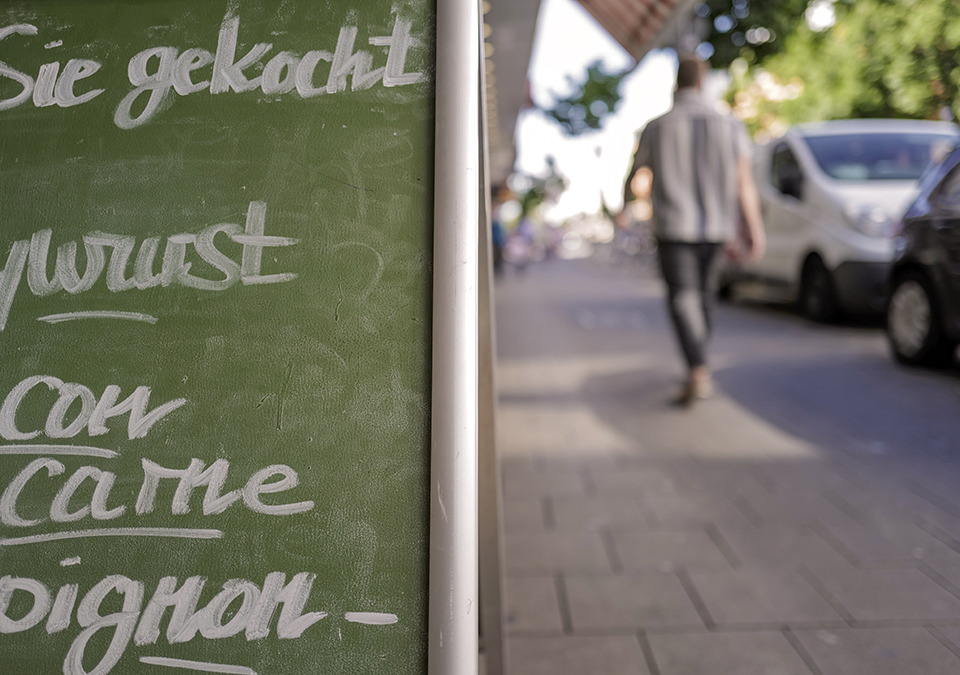 Sie gekocht
ywurst
con
carne
pignon-